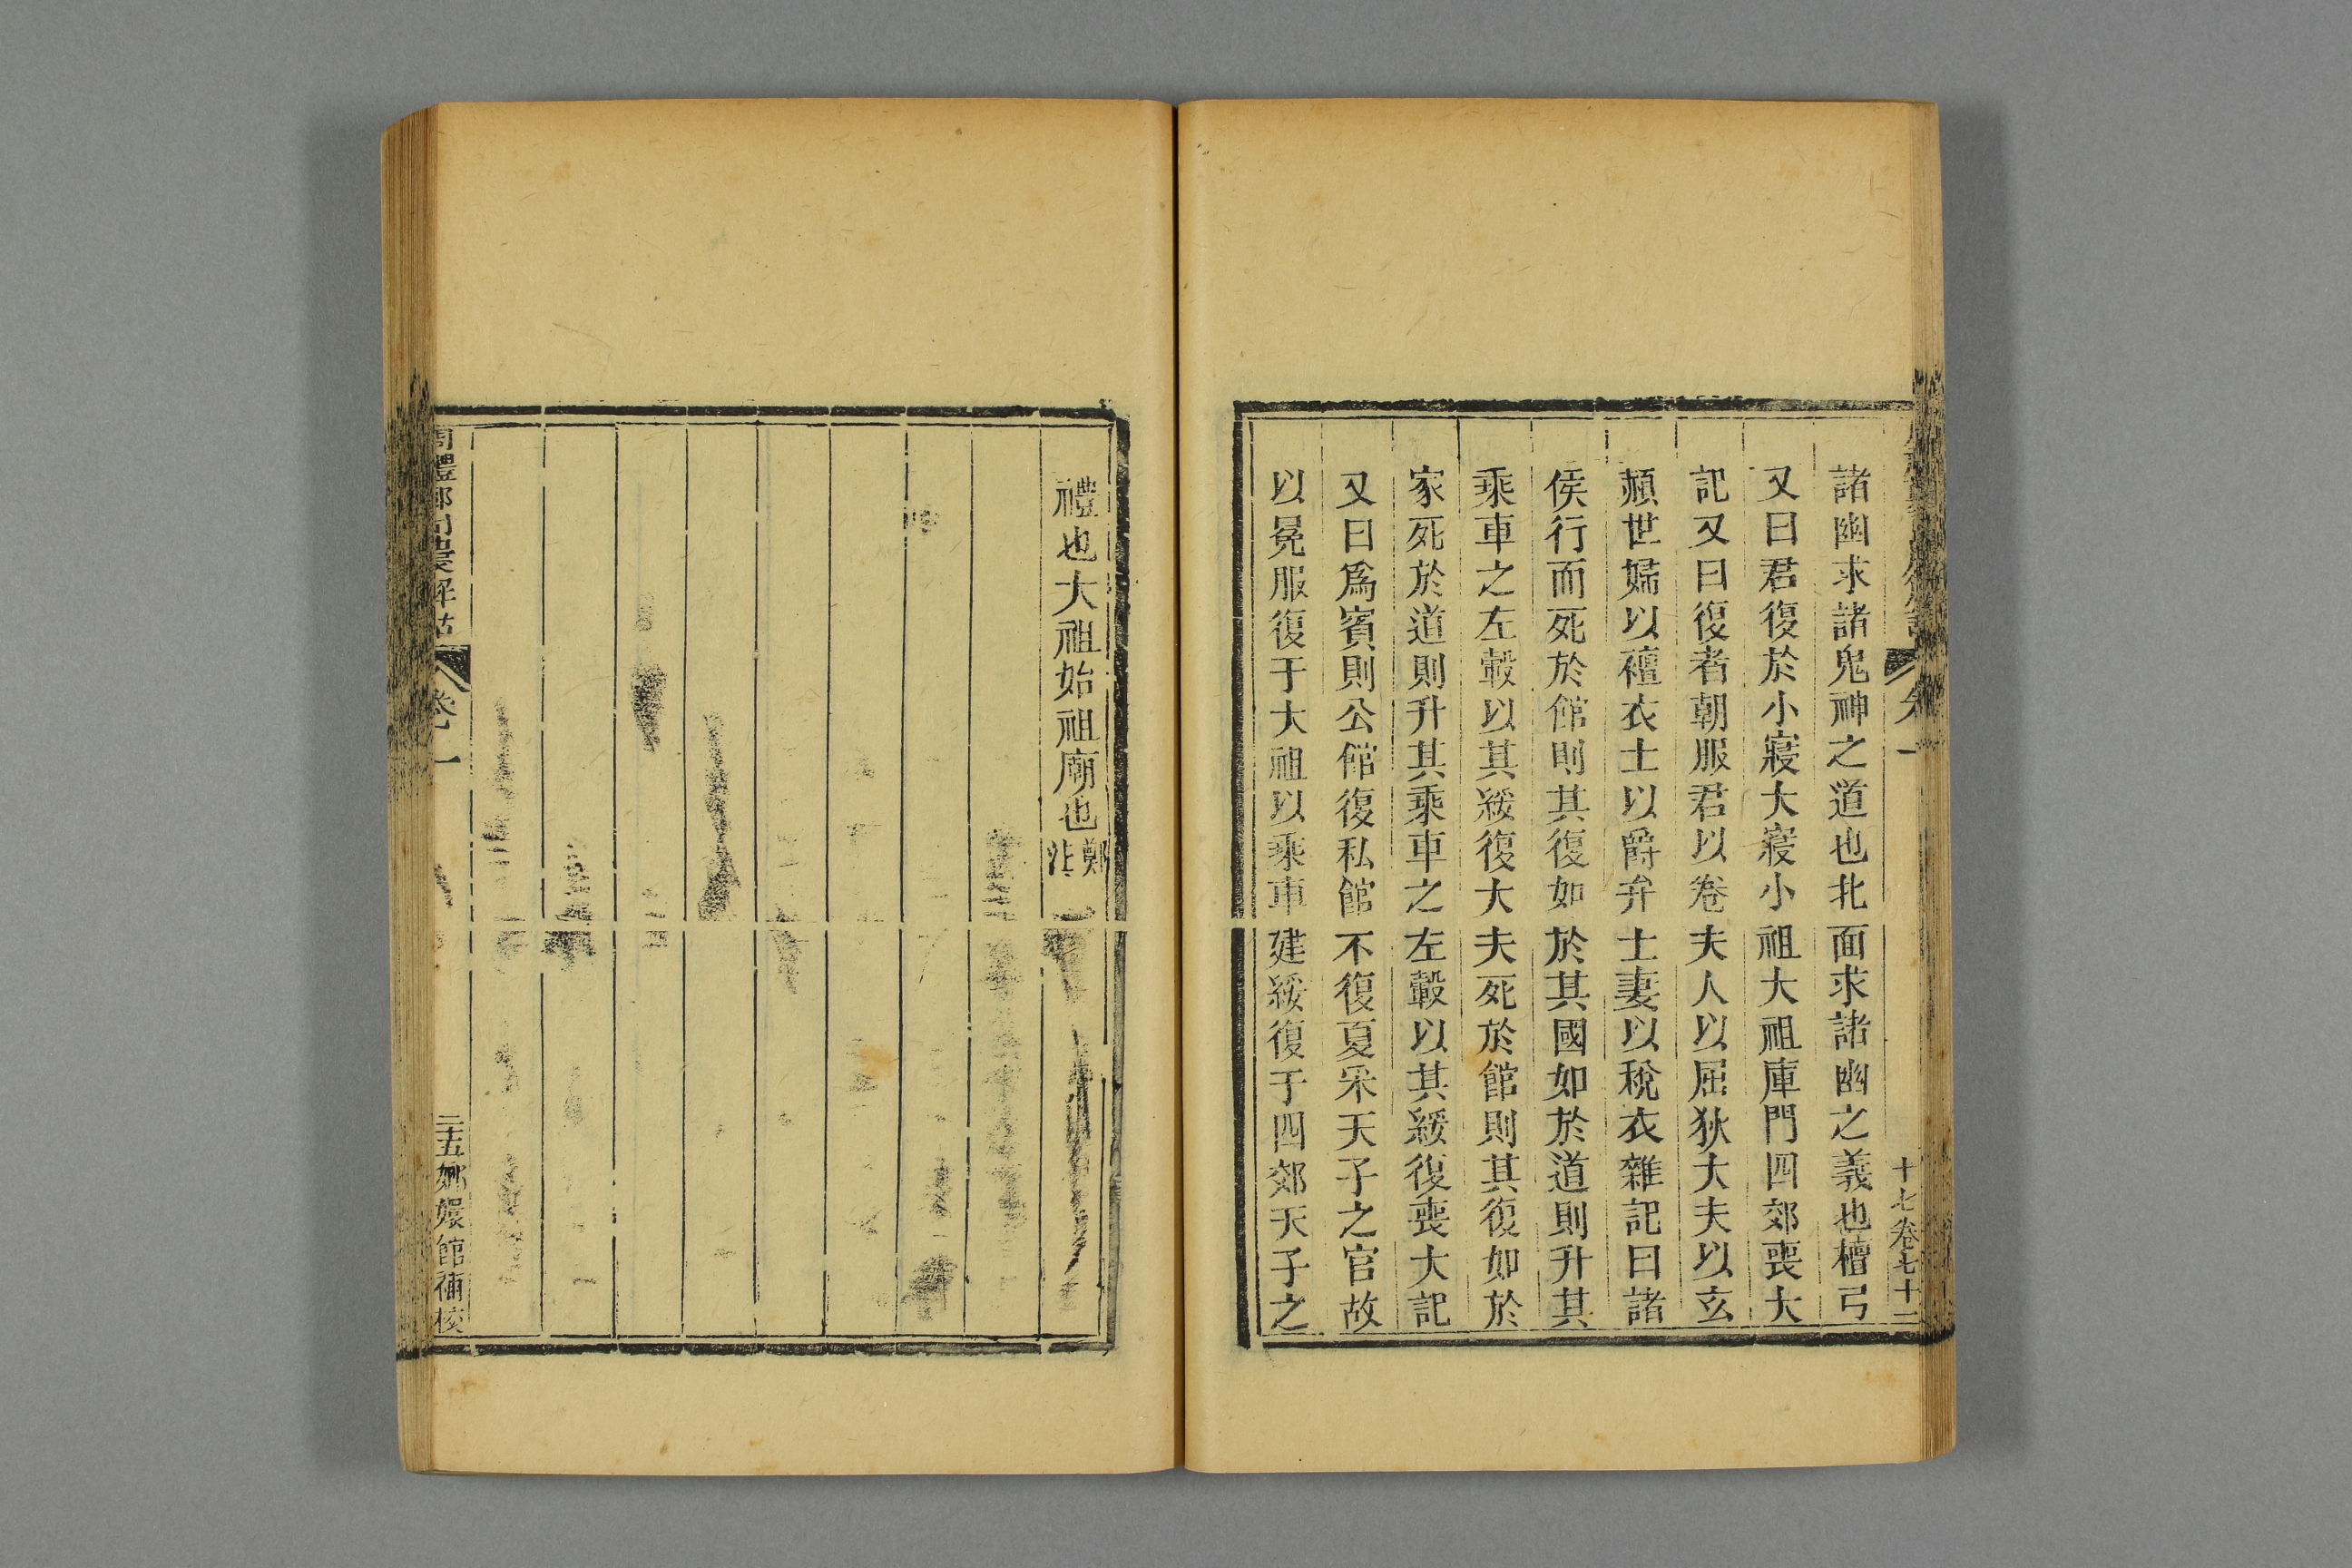 諸幽求諸鬼神之道也北面求諸幽之義也檀弓
又曰君復於小寢大寢小祖大祖庫門四郊喪大
記又曰復者朝服君以卷夫人以屈狄大夫以玄
赬世婦以襢衣士以爵弁士妻以稅衣雜記曰諸
侯行而死於館則其復如於其國如於道則升其
乘車之左轂以其綏復大夫死於館則其復如於
家死於道則升其乘車之左轂以其綏復喪大記
又曰爲賓則公館復私館不復夏采天子之官故
以冕服復于大祖以乘車建綏復于四郊天子之
十七卷七十二
禮也大祖始祖廟也鄭注
周禮鄭司農解詁 卷一 二十五 嫏嬛館補校